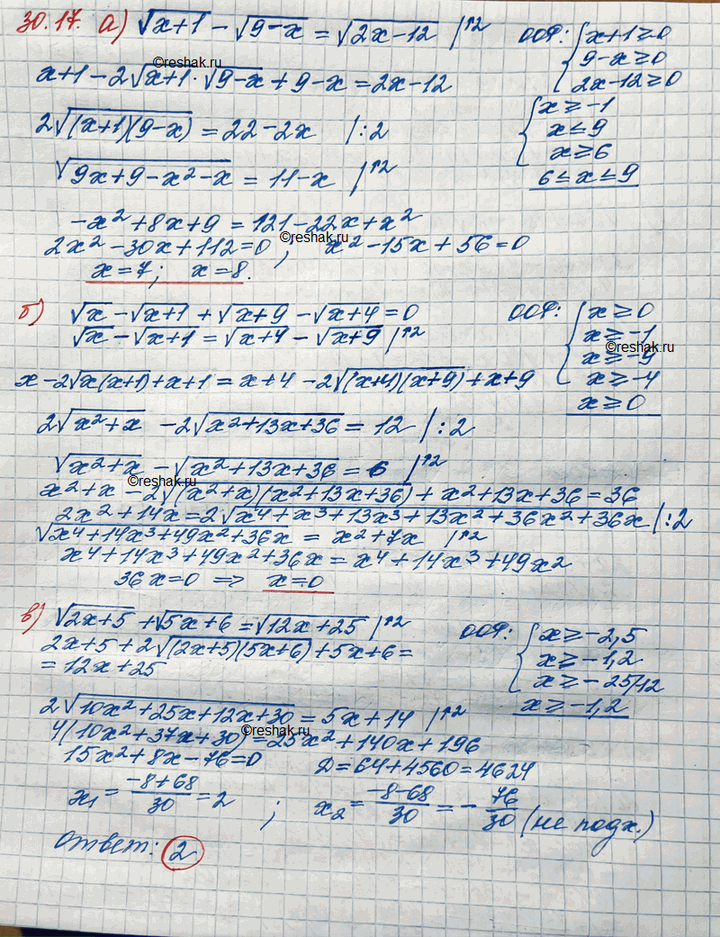 30.17. а) √(x+1) - √(9-x) = √(2x-12) |↑2
ООФ: { x+1≥0
9-x≥0
2x-12≥0
©reshak.ru
x+1-2√(x+1)·√(9-x)+9-x=2x-12
{ x≥-1
x≤9
x≥6
6≤x≤9
2√((x+1)(9-x)) = 22-2x |:2
√(9x+9-x²-x) = 11-x |↑2
-x²+8x+9=121-22x+x²
©reshak.ru
2x²-30x+112=0; x²-15x+56=0
x=7; x=8.
б) √x - √(x+1) + √(x+9) - √(x+4) = 0
ООФ: { x≥0
x≥-1
x≥-9
x≥-4
x≥0
©reshak.ru
√x - √(x+1) = √(x+4) - √(x+9) |↑2
x-2√(x(x+1))+x+1=x+4-2√((x+4)(x+9))+x+9
2√(x²+x) - 2√(x²+13x+36) = 12 |:2
√(x²+x) - √(x²+13x+36) = 6 |↑2
©reshak.ru
x²+x-2√((x²+x)(x²+13x+36))+x²+13x+36=36
2x²+14x=2√(x⁴+x³+13x³+13x²+36x²+36x) |:2
√(x⁴+14x³+49x²+36x) = x²+7x |↑2
x⁴+14x³+49x²+36x=x⁴+14x³+49x²
36x=0 ⇒ x=0
в) √(2x+5) + √(5x+6) = √(12x+25) |↑2
ООФ: { x≥-2,5
x≥-1,2
x≥-25/12
x≥-1,2
2x+5+2√((2x+5)(5x+6))+5x+6=
=12x+25
2√(10x²+25x+12x+30) = 5x+14 |↑2
©reshak.ru
4(10x²+37x+30)=25x²+140x+196
15x²+8x-76=0 D=64+4560=4624
x₁ = (-8+68)/30 = 2 ; x₂ = (-8-68)/30 = -76/30 (не подх.)
Ответ: 2